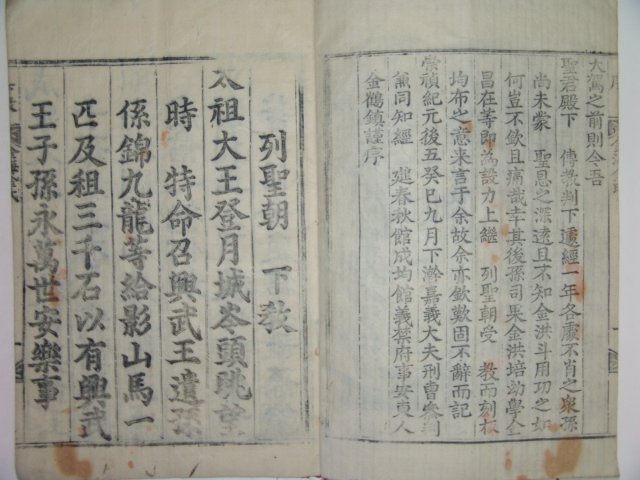 大駕之前則今吾
聖君殿下 傳敎判下還經一年各處不肖之衆孫
尙未蒙 聖恩之深遠且不知金洪斗用功之如
何豈不欽且痛哉幸其後孫司果金洪培幼學金
昌在等卽爲設力上繼 列聖朝受 敎而刻板
均布之意來言于余故余亦欽歎固不辭而記
崇禎紀元後五癸巳九月下澣嘉義大夫刑曹參判
兼同知經 筵春秋館成均館義禁府事安東人
金鶴鎭謹序
列聖朝 下敎
太祖大王登月城岑頭眺望
時 特命召興武王遺孫
係錦九龍等給影山馬一
匹及租三千石以有興武
王子孫永萬世安樂事